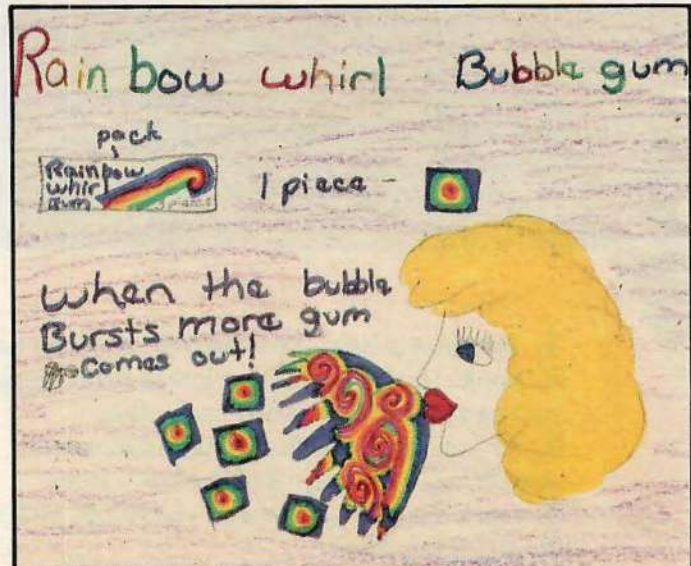 Rainbow whirl Bubble gum
pack
Rainbow
whirl
gum
1 piece -
when the bubble
Bursts more gum
comes out!